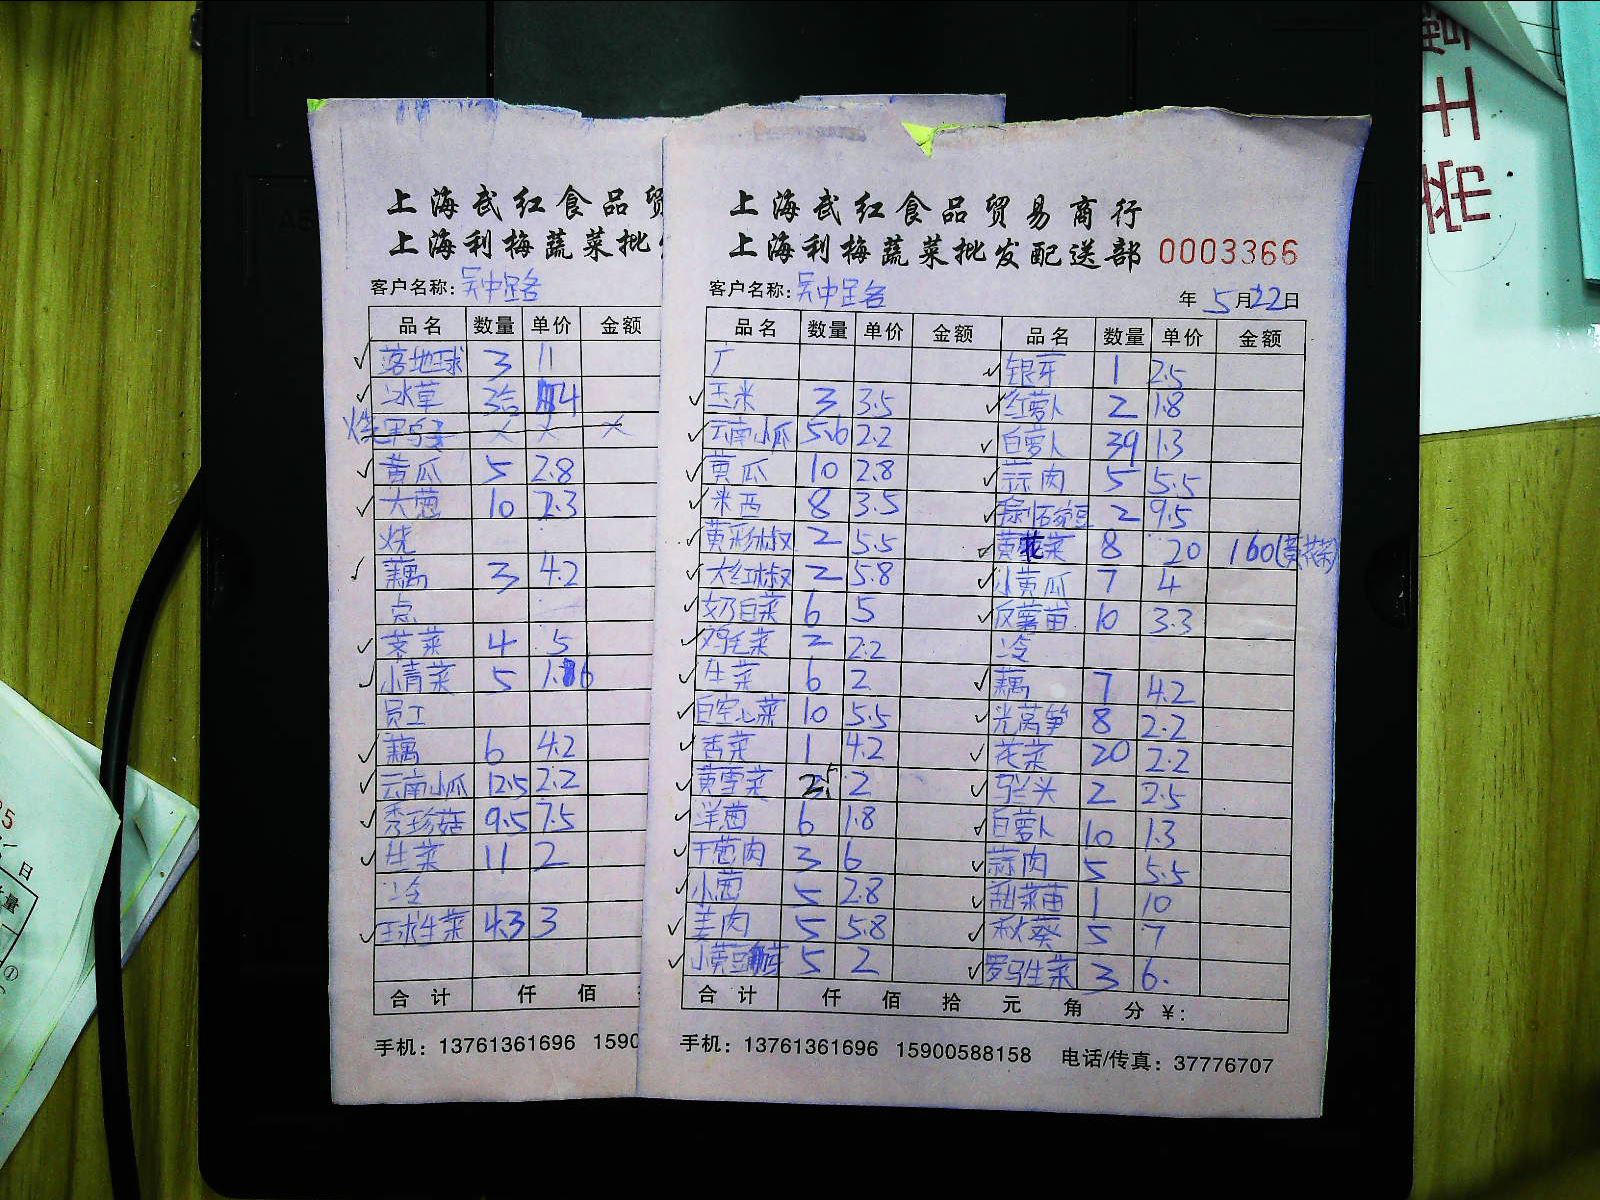 上海武红食品贸
上海利梅蔬菜批
客户名称: 吴中路
品名 数量 单价 金额
落地球 3 11
冰草 3 4
黄瓜 5 2.8
大葱 10 2.3
烧
藕 3 4.2
点
荠菜 4 5
小青菜 5 1.6
员工
藕 6 4.2
云南小瓜 12.5 2.2
秀珍菇 9.5 7.5
生菜 11 2
冷
球生菜 4.3 3
合计 仟 佰
手机: 13761361696 1590
上海武红食品贸易商行
上海利梅蔬菜批发配送部 0003366
客户名称: 吴中路
年 5月22日
品名 数量 单价 金额 品名 数量 单价 金额
广 银芽 1 2.5
玉米 3 3.5 红萝卜 2 1.8
云南小瓜 5.6 2.2 白萝卜 39 1.3
黄瓜 10 2.8 蒜肉 5 5.5
米西 8 3.5 豌豆 2 9.5
黄彩椒 2 5.5 黄花菜 8 20 160(黄花菜)
大红椒 2 5.8 小黄瓜 7 4
奶白菜 6 5 反薯苗 10 3.3
鸡毛菜 2 2.2 冷
生菜 6 2 藕 7 4.2
白空心菜 10 5.5 光莴笋 8 2.2
香菜 1 4.2 花菜 20 2.2
黄雪菜 2.5 2 马兰头 2 2.5
洋葱 6 1.8 白萝卜 10 1.3
干葱肉 3 6 蒜肉 5 5.5
小葱 5 2.8 甜菜苗 1 10
姜肉 5 5.8 秋葵 5 7
小黄豆芽 5 2 罗马生菜 3 6.
合计 仟 佰 拾 元 角 分 ¥:
手机: 13761361696 15900588158 电话/传真: 37776707